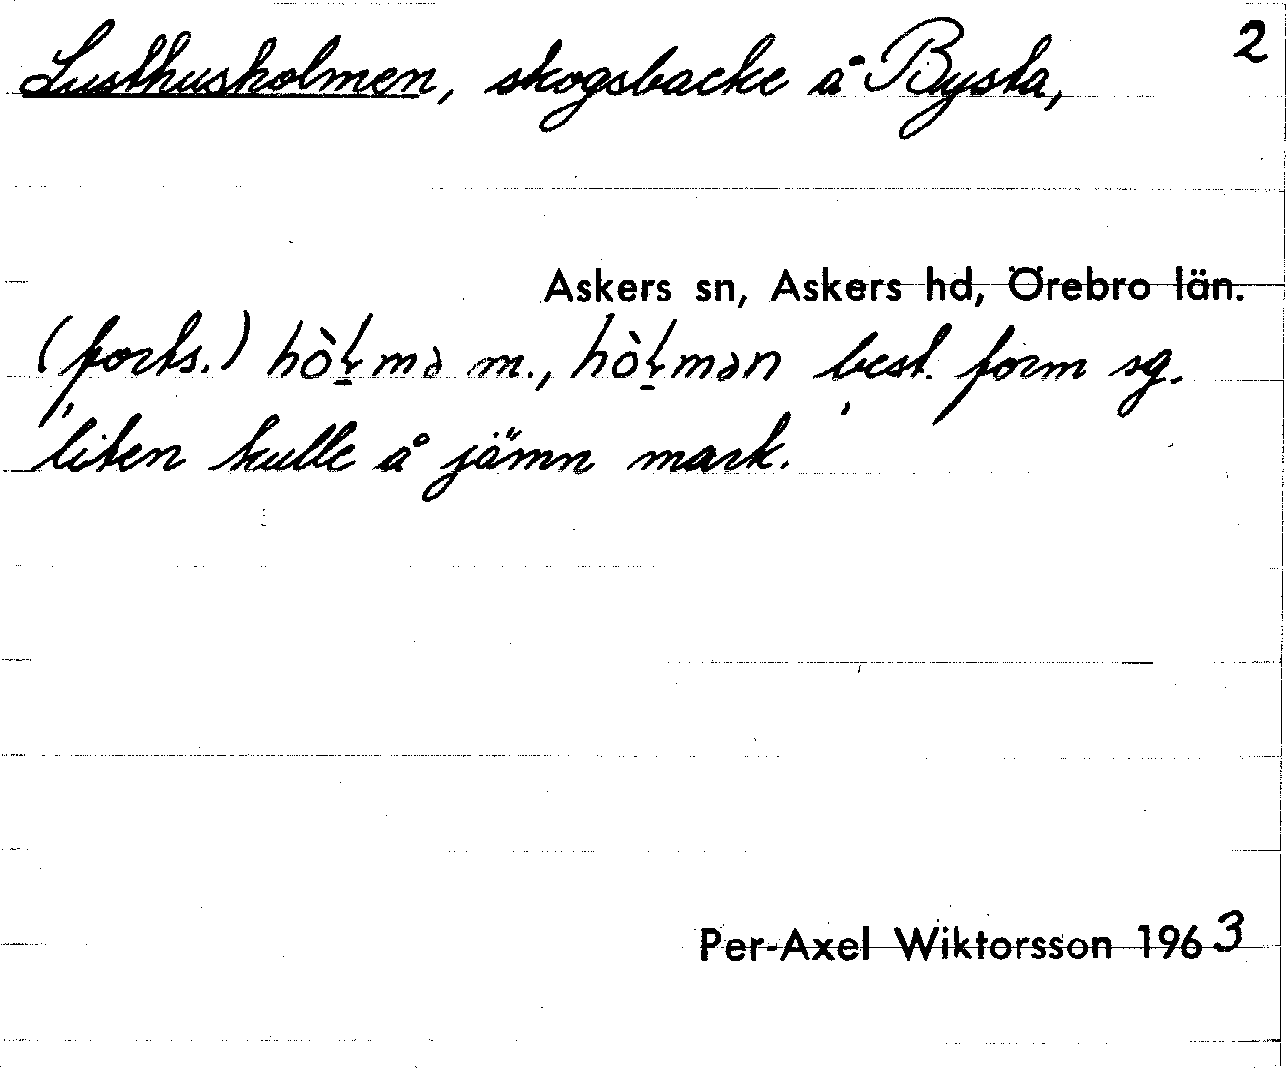 Lusthusholmen, skogsbacke å Bysta, 2
Askers sn, Askers hd, Örebro län.
(forts.) hò̱ɫmə m., hò̱ɫmən best. form sg.
'liten kulle å jämn mark.'
Per-Axel Wiktorsson 1963